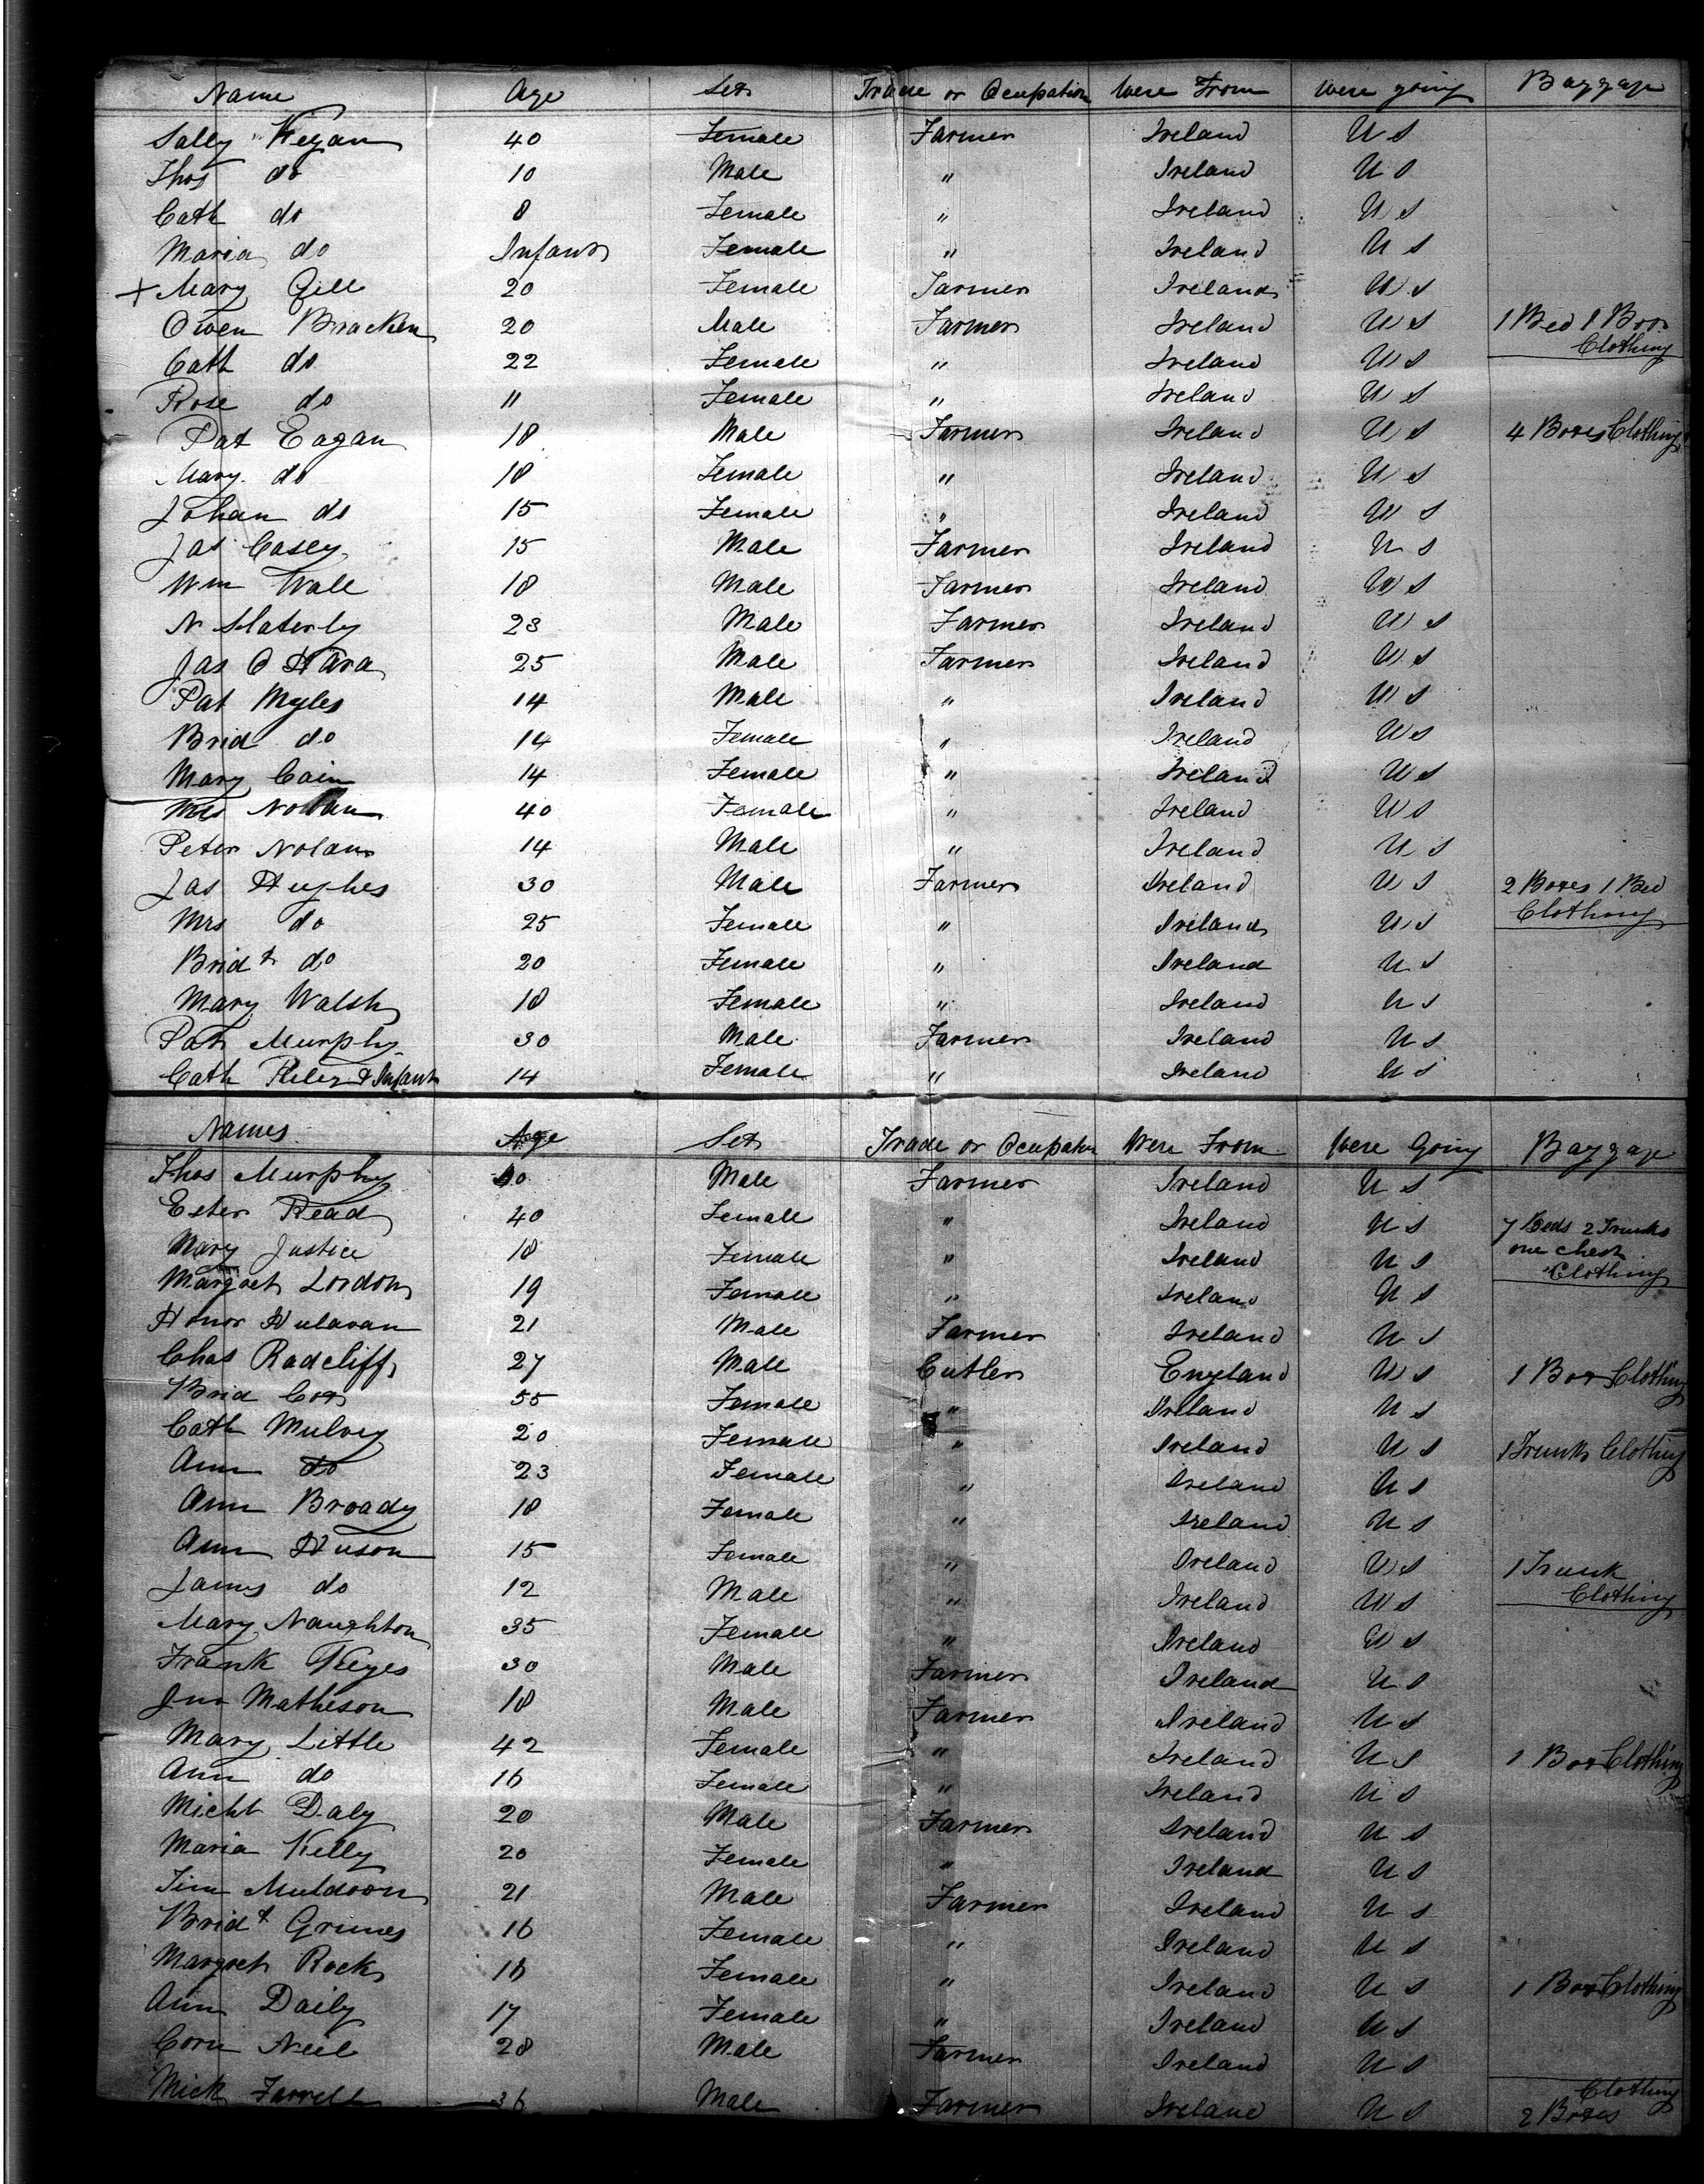 Name Age Sex Trade or Ocupation Were From Were going Baggage
Sally Kegan 40 Female Farmer Ireland U S
Thos do 10 Male " Ireland U S
Cath do 8 Female " Ireland U S
Maria do Infant Female " Ireland U S
+ Mary Gill 20 Female Farmer Ireland U S
Owen Bracken 20 Male Farmer Ireland U S 1 Bed 1 Box
Clothing
Cath do 22 Female " Ireland U S
Rose do 11 Female " Ireland U S
Pat Eagan 18 Male Farmer Ireland U S 4 Boxes Clothing
Mary do 18 Female " Ireland U S
Johan do 15 Female " Ireland U S
Jas Casey 15 Male Farmer Ireland U S
Wm Wall 18 Male Farmer Ireland U S
N Slaterly 23 Male Farmer Ireland U S
Jas O Hara 25 Male Farmer Ireland U S
Pat Myles 14 Male " Ireland U S
Brid do 14 Female " Ireland U S
Mary Cain 14 Female " Ireland U S
Mrs Nolan 40 Female " Ireland U S
Peter Nolan 14 Male " Ireland U S
Jas Hughes 30 Male Farmer Ireland U S 2 Boxes 1 Bed
Clothing
Mrs do 25 Female " Ireland U S
Bridt do 20 Female " Ireland U S
Mary Walsh 18 Female " Ireland U S
Pat Murphy 30 Male Farmer Ireland U S
Cath Riley & Infant 14 Female " Ireland U S
Names Age Sex Trade or Ocupation Were From Were Going Baggage
Thos Murphy Male Farmer Ireland U S
Ester Read 40 Female " Ireland U S 7 Beds 2 Trunks
one chest
Clothing
Mary Justice 18 Female " Ireland U S
Margret Lordon 19 Female " Ireland U S
Honor Hulavan 21 Male Farmer Ireland U S
Chas Radcliff 27 Male Cutler England U S 1 Box Clothing
Brid Cox 55 Female " Ireland U S
Cath Mulvey 20 Female " Ireland U S 1 Trunk Clothing
Ann do 23 Female " Ireland U S
Ann Broady 18 Female " Ireland U S
Ann Huson 15 Female " Ireland U S 1 Trunk
Clothing
James do 12 Male " Ireland U S
Mary Naughton 35 Female " Ireland U S
Frank Keyes 30 Male Farmer Ireland U S
Jno Matheson 18 Male Farmer Ireland U S
Mary Little 42 Female " Ireland U S 1 Box Clothing
Ann do 16 Female " Ireland U S
Michl Daly 20 Male Farmer Ireland U S
Maria Kelly 20 Female " Ireland U S
Tim Muldoon 21 Male Farmer Ireland U S
Bridt Grimes 16 Female " Ireland U S
Margret Rock 18 Female " Ireland U S 1 Box Clothing
Ann Daily 17 Female " Ireland U S
Corn Neil 28 Male Farmer Ireland U S
Mick Farrell 36 Male Farmer Ireland U S Clothing
2 Boxes